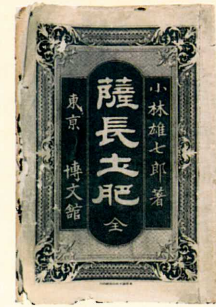 小林雄七郎著
薩長土肥 全
東京 博文館